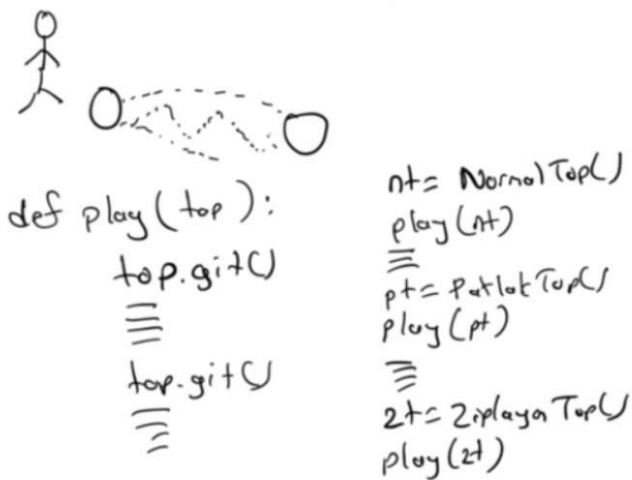 def play(top):
top.git()
top.git()
nt = NormalTop()
play(nt)
pt = PatlakTop()
play(pt)
zt = ZiplayanTop()
play(zt)